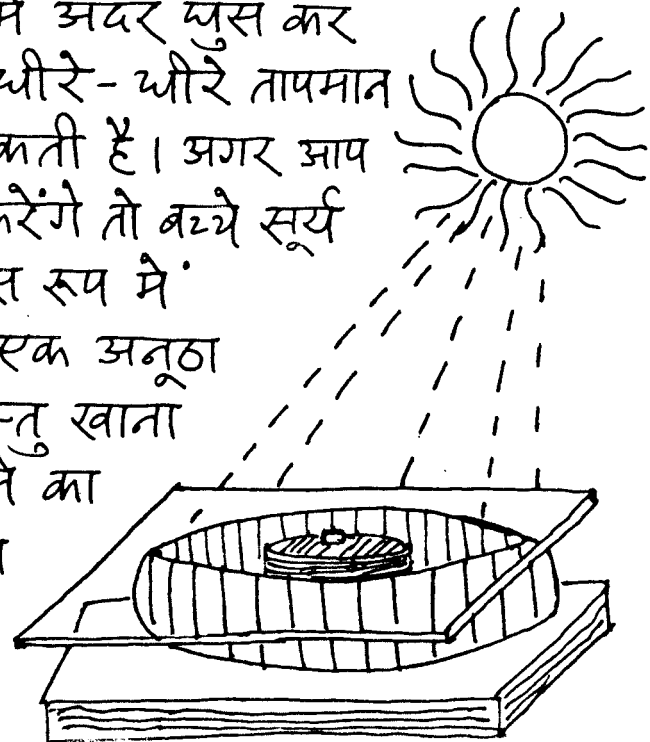 अंदर घुस कर
धीरे-धीरे तापमान
है। अगर आप
करेंगे तो बच्चे सूर्य
रूप में
एक अनूठा
खाना
का